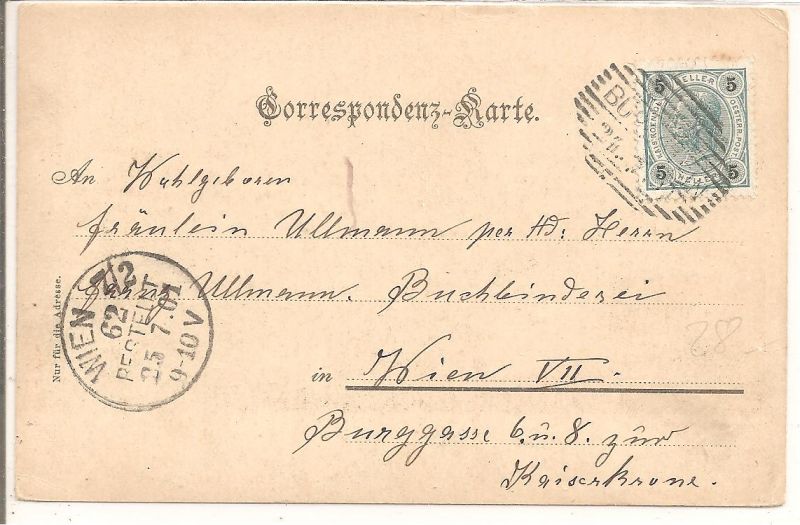 Correspondenz-Karte.
5 HELLER 5
5 5
An Wohlgeboren
Fräulein Ullmann per Ad: Herrn
Franz Ullmann. Buchbinderei
in Wien VII.
Burggasse 6. u. 8. zur
Kaiserkrone.
Nur für die Adresse.
WIEN 7/2
62
BESTELLT
25 7.01
9-10V
28